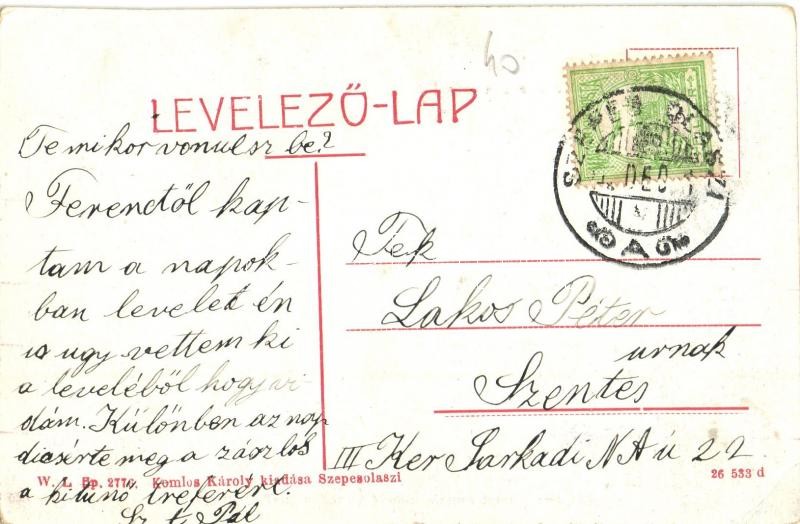 40
LEVELEZŐ-LAP
Te mikor vonulsz be?
Ferenctől kap-
tam a napok-
ban levelet én
is ugy vettem ki
a leveléből hogy vi-
dám. Különben az nap
dicsérte meg a zászlós
a kitünő
Pál
SZEPES OLASZI
DEC
Tek
Lakos Péter
urnak
Szentes
III Ker Sarkadi N A ú 22
W. L. Bp. 2770. Komlos Károly kiadása Szepesolaszi
26 533 d